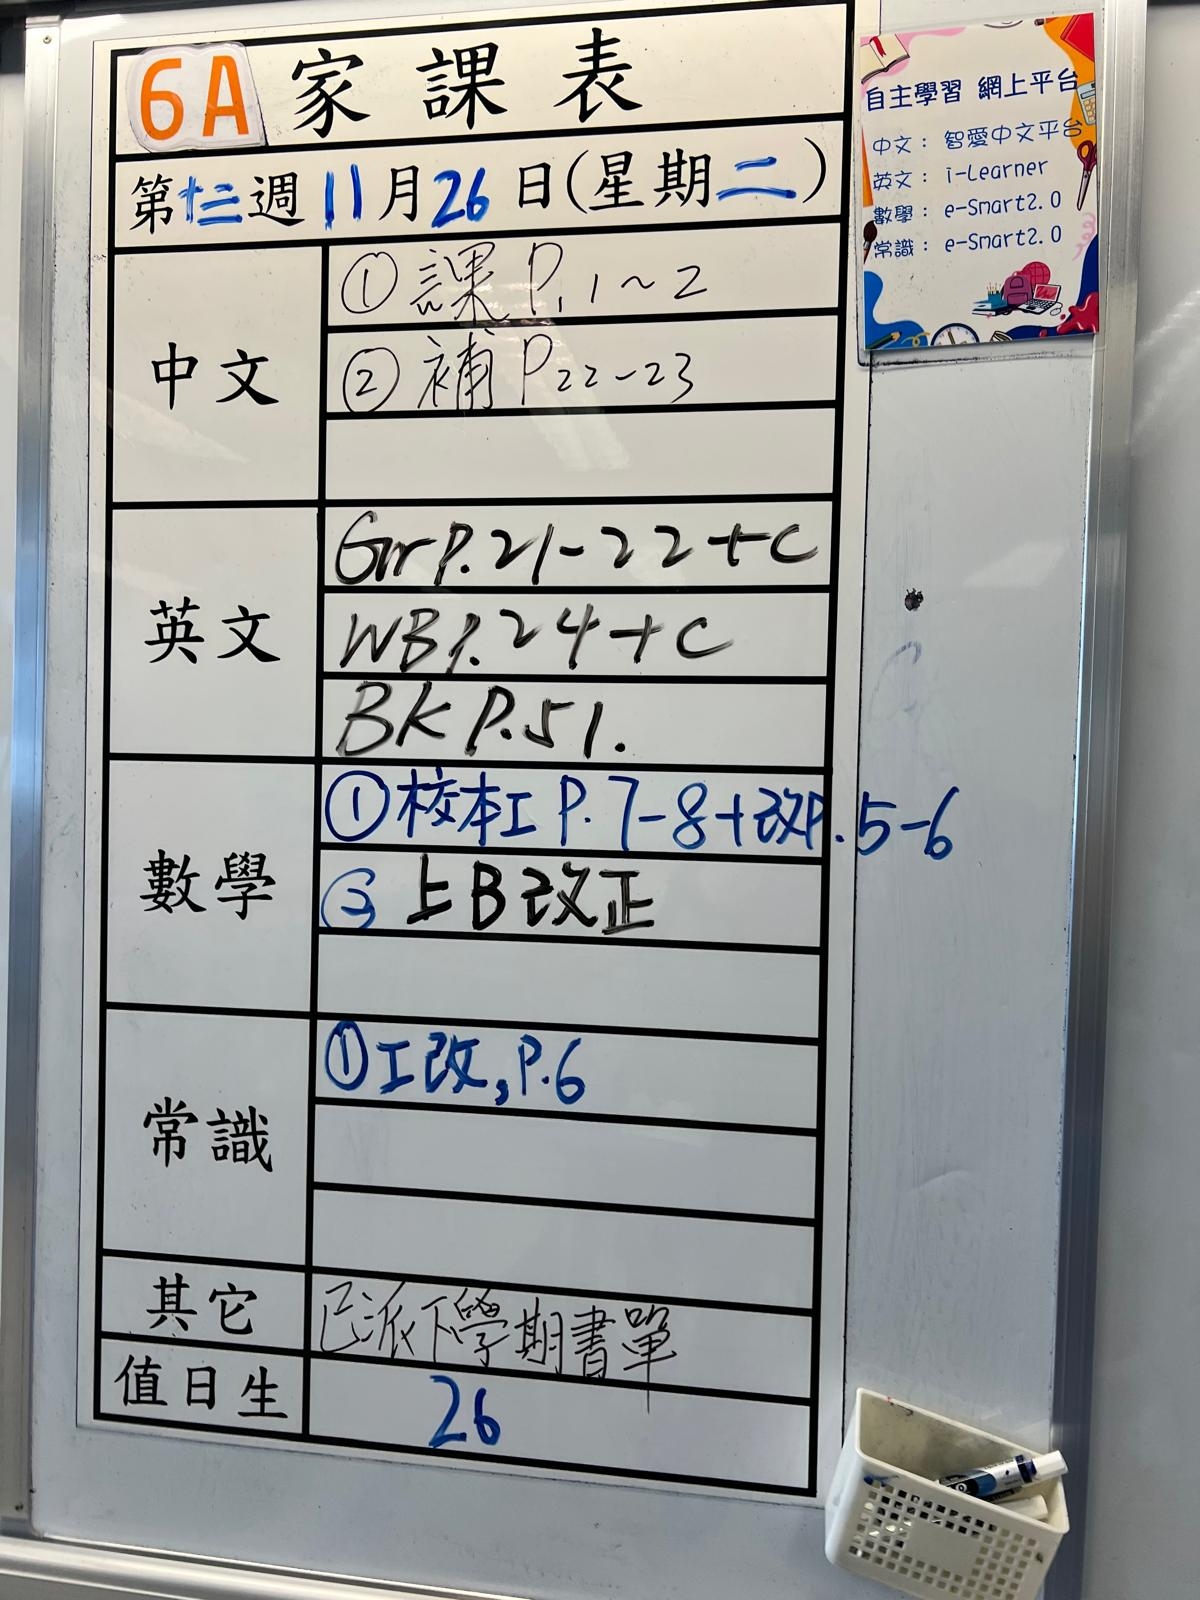 6A 家課表
第十三週 11月26日(星期二)
中文
① 課 P.1~2
② 補 P22-23
英文
Gr P.21-22+C
WB P.24+C
BK P.51.
數學
① 校本工 P.7-8+改P.5-6
② 上B改正
常識
① 工改, P.6
其它
已派下學期書單
值日生
26
自主學習 網上平台
中文: 智愛中文平台
英文: i-Learner
數學: e-Smart2.0
常識: e-Smart2.0